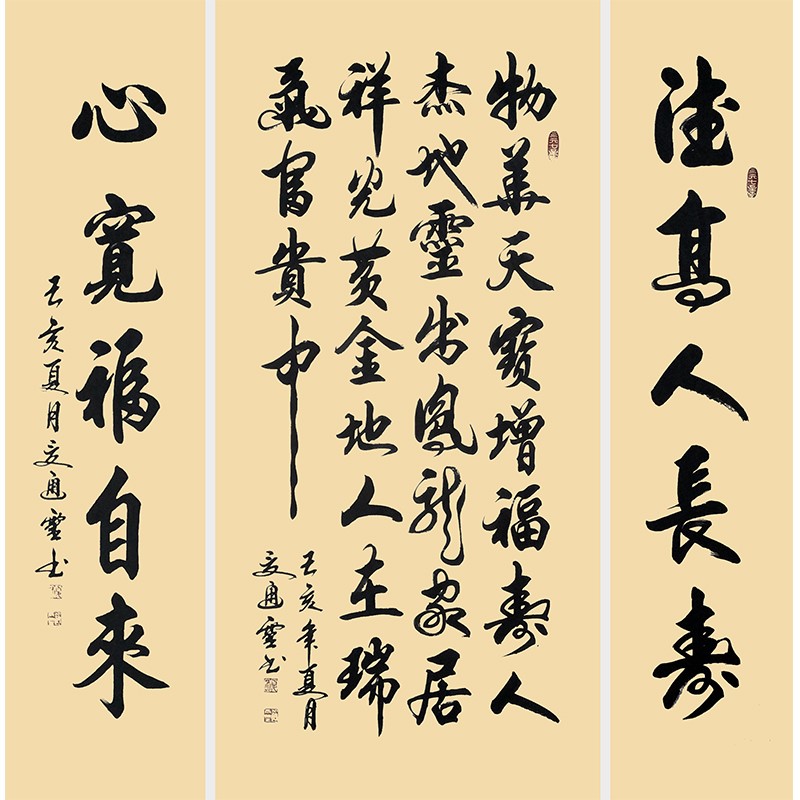 德高人長壽
物華天寶增福壽人
杰地靈出鳳龍家居
祥光黃金地人在瑞
氣富貴中
亥年夏月
通 书
心寬福自來
亥夏月 通 书